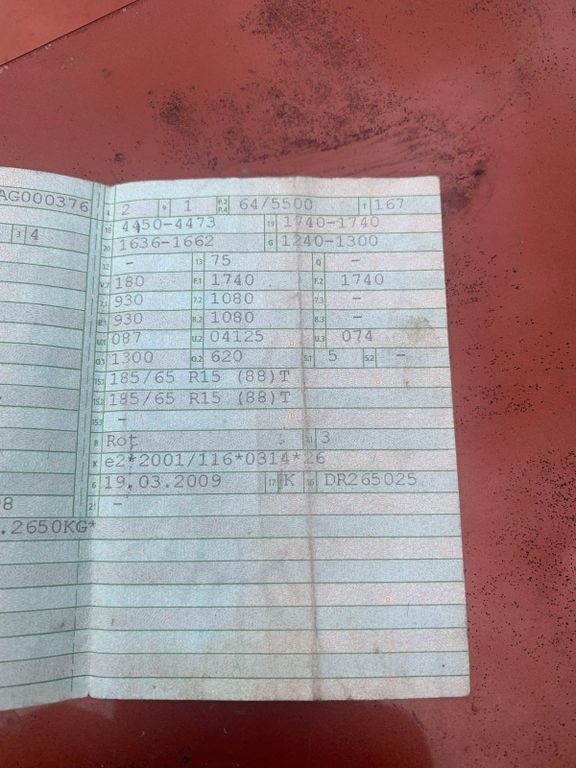 AG000376
L 2 9 1 P.2 P.4 64/5500 T 167
3 4
18 4450-4473 19 1740-1740
20 1636-1662 G 1240-1300
12 - 13 75 Q -
V.7 180 F.1 1740 F.2 1740
7.1 930 7.2 1080 7.3 -
8.1 930 8.2 1080 8.3 -
U.1 087 U.2 04125 U.3 074
O.1 1300 O.2 620 S.1 5 S.2 -
15.1 185/65 R15 (88)T
15.2 185/65 R15 (88)T
15.3 -
R Rot 11 3
K e2*2001/116*0314*26
6 19.03.2009 17 K 16 DR265025
8
21 -
.2650KG*